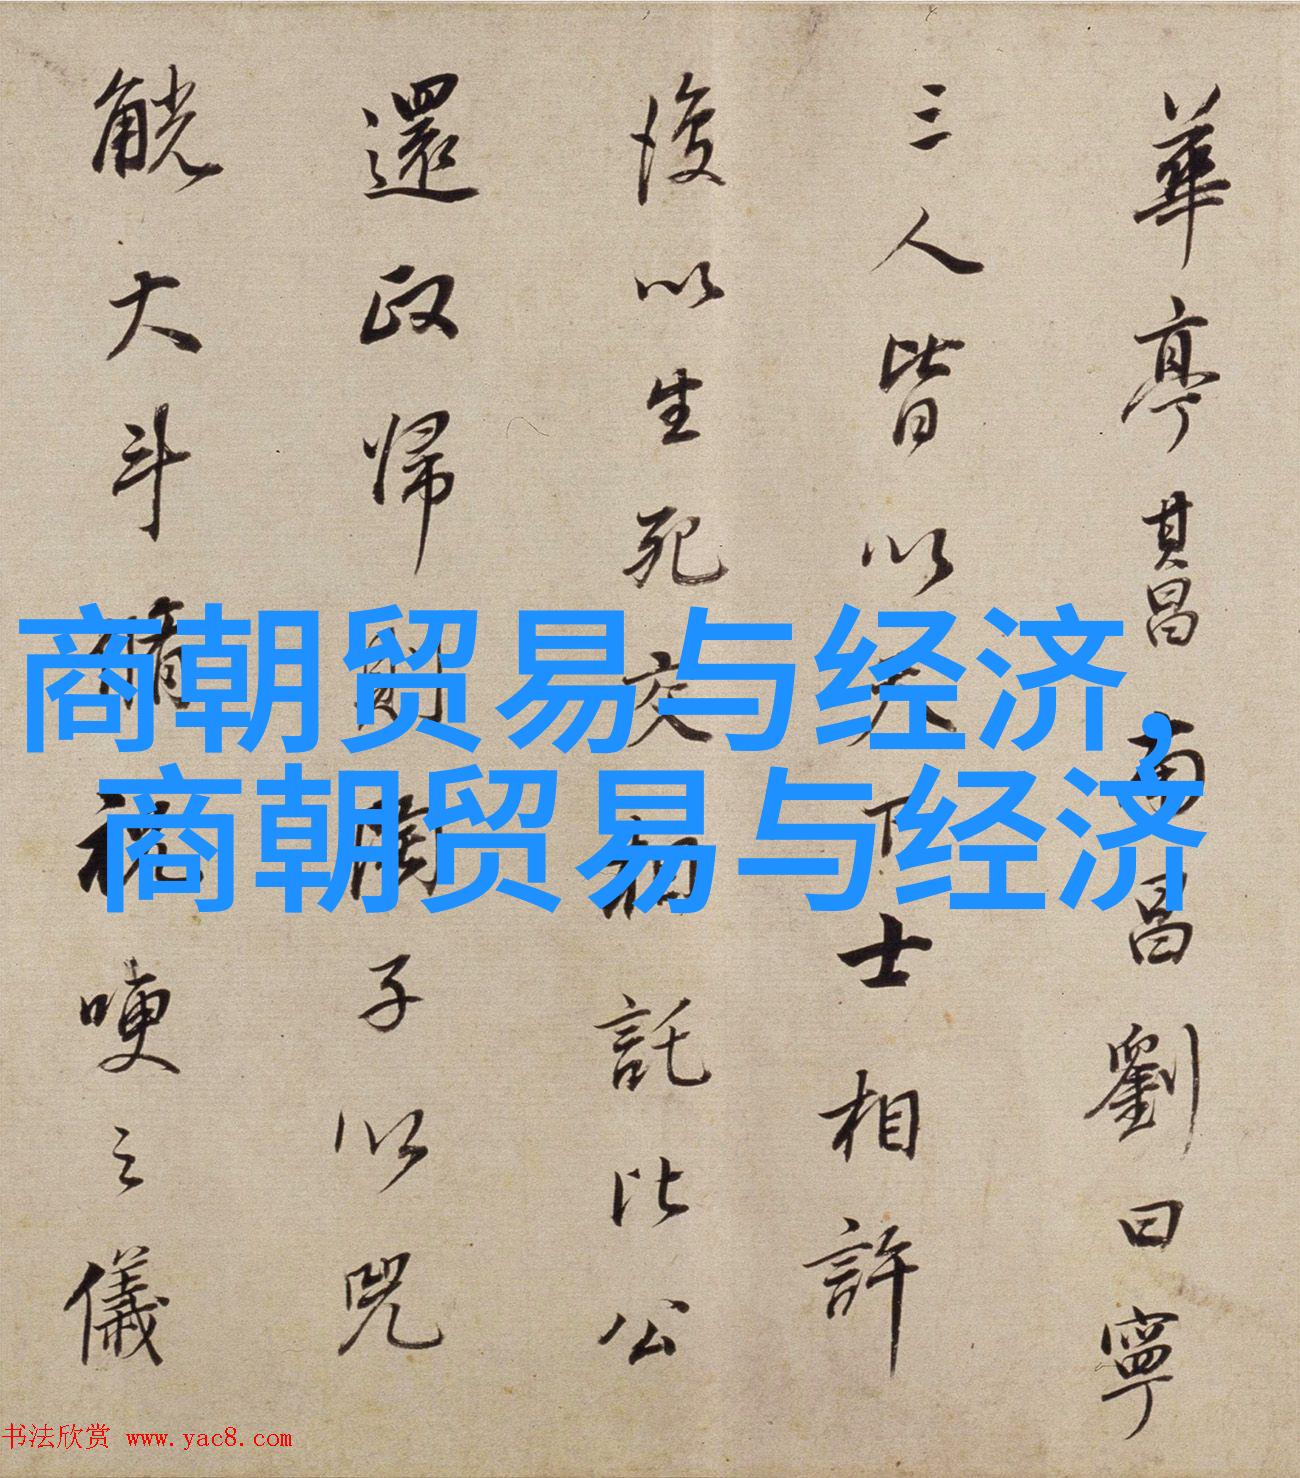 華亭其昌南昌劉曰寧
三人皆以天下士相許
後以生死交相託比公
還政歸則陶子以兕
觥大斗脩祝哽之儀
商朝贸易与经济,
商朝贸易与经济
书法欣赏 www.yac8.com